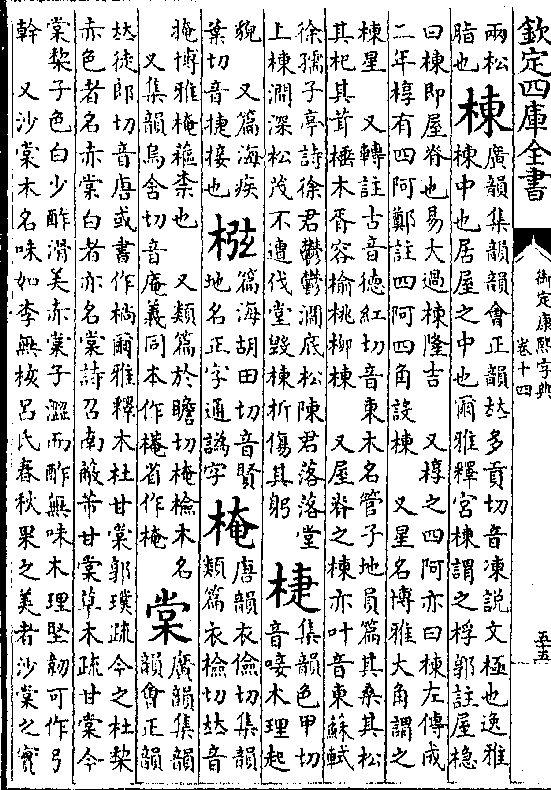 欽定四庫全書
御定康熙字典
卷十四
兩松
脂也
棟
廣韻集韻韻會正韻𠀤多貢切音凍説文極也逸雅
棟中也居屋之中也爾雅釋宫棟謂之桴郭註屋檼
曰棟即屋脊也易大過棟隆吉　又椁之四阿亦曰棟左傳成
二年椁有四阿鄭註四阿四角設棟　又星名博雅大角謂之
棟星　又轉註古音德紅切音東木名管子地員篇其桑其松
其杞其茸木胥容榆桃柳棟　又屋脊之棟亦叶音東蘇軾
徐孺子亭詩徐君鬱鬱澗底松陳君落落堂
上棟澗深松茂不遭伐堂毁棟折傷其躬
集韻色甲切
音唼木理起
貌　又篇海疾
葉切音捷接也
篇海胡田切音賢
地名正字通譌字
唐韻衣儉切集韻
類篇衣檢切𠀤音
晻博雅柰也　又類篇於贍切檢木名
又集韻烏含切音庵義同本作省作
棠
廣韻集韻
韻會正韻
𠀤徒郎切音唐或書作㭻爾雅釋木杜甘棠郭璞疏今之杜棃
赤色者名赤棠白者亦名棠詩召南蔽芾甘棠草木疏甘棠今
棠棃子色白少酢滑美赤棠子澀而酢無味木理堅韌可作弓
幹　又沙棠木名味如李無核吕氏春秋果之美者沙棠之實